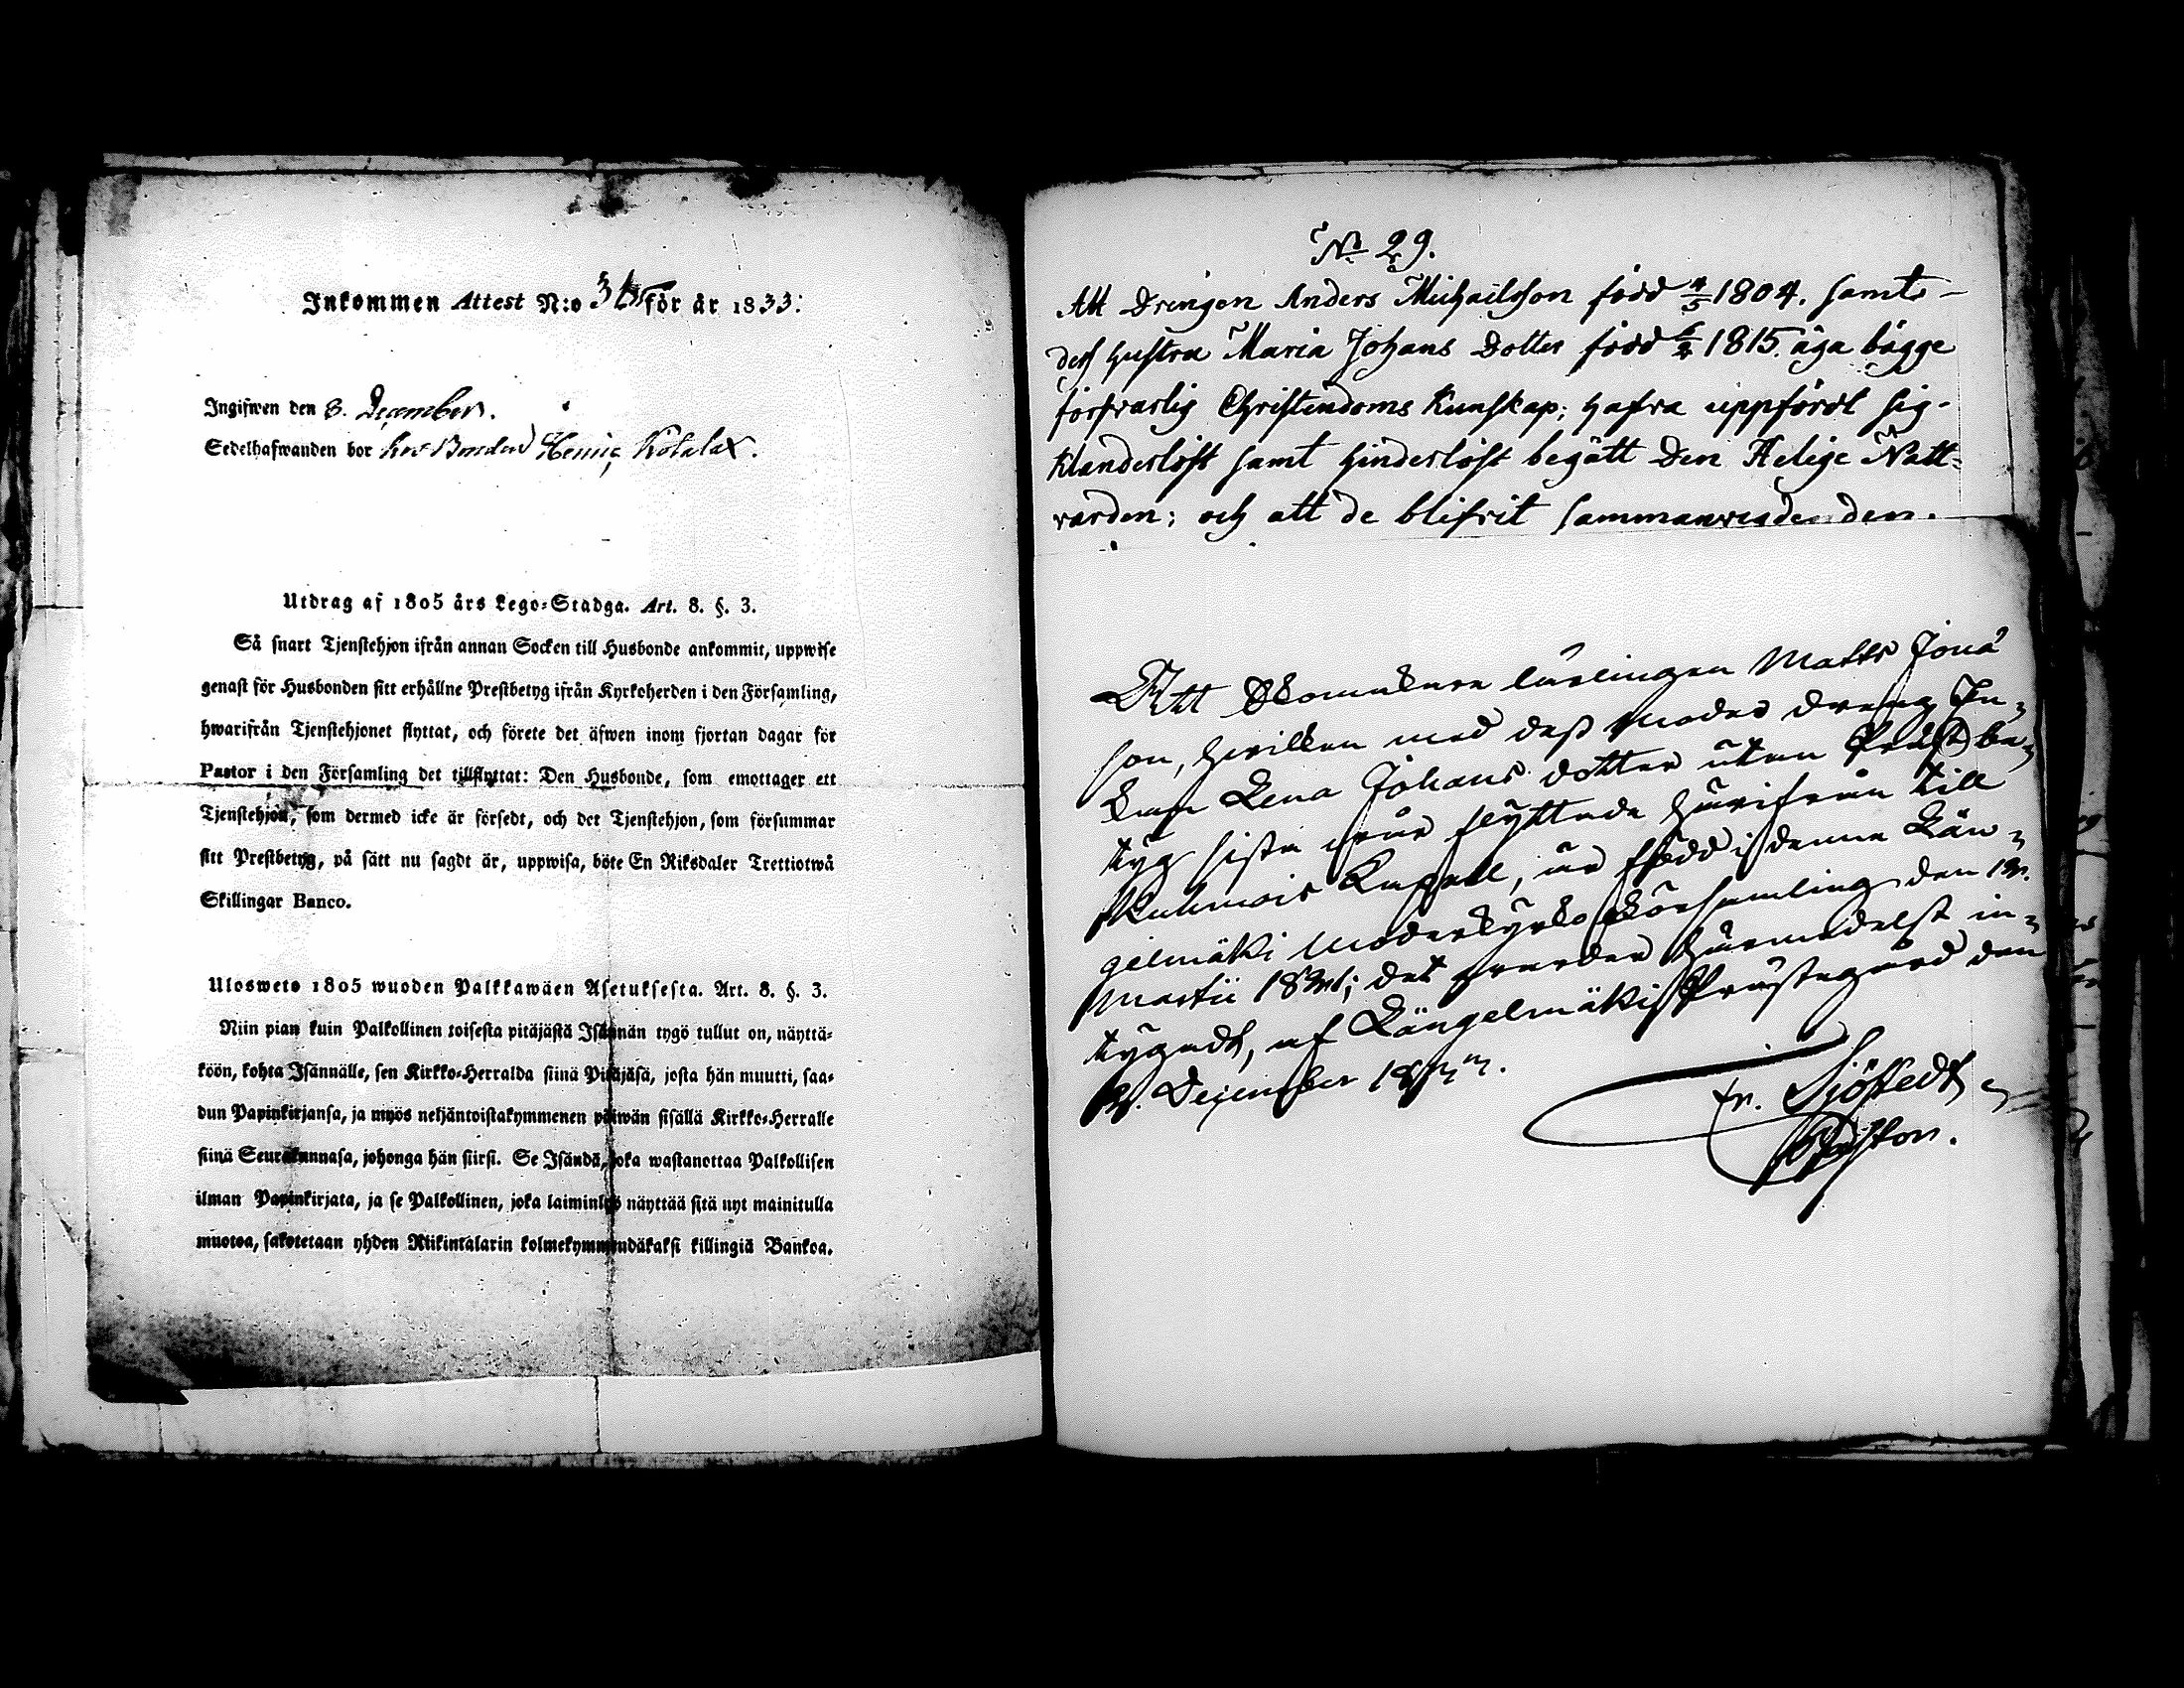 Inkommen Attest N:o för år 1833:
Ingifwen den 8. December.
Sedelhafwanden bor hos Bonden Heinig Kotalax.
Utdrag af 1805 års Lego-Stadga. Art. 8. §. 3.
Så snart Tjenstehjon ifrån annan Socken till Husbonde ankommit, uppwise
genast för Husbonden sitt erhållne Prestbetyg ifrån Kyrkoherden i den Församling,
hwarifrån Tjenstehjonet flyttat, och förete det äfwen inom fjortan dagar för
Pastor i den Församling det tillflyttat: Den Husbonde, som emottager ett
Tjenstehjon, som dermed icke är försedt, och det Tjenstehjon, som försummar
sitt Prestbetyg, på sätt nu sagdt är, uppwisa, böte En Riksdaler Trettiotwå
Skillingar Banco.
Ulosweto 1805 wuoden Palkkawäen Asetuksesta. Art. 8. §. 3.
Niin pian kuin Palkollinen toisesta pitäjästä Isännän tygö tullut on, näyttä-
köön, kohta Isännälle, sen Kirkko-Herralda siinä Pitäjäsä, josta hän muutti, saa-
dun Papinkirjansa, ja myös neljäntoistakymmenen päiwän sisällä Kirkko-Herralle
siinä Seurakunnasa, johonga hän siirsi. Se Isändä, joka wastanottaa Palkollisen
ilman Papinkirjata, ja se Palkollinen, joka laiminlyö näyttää sitä nyt mainitulla
muotoa, sakotetaan yhden Riikintalarin kolmekymmendäkaksi killingiä Bankoa.
No 29.
Att Drängen Anders Michaelsson född 4/5 1804. samt
dess hustru Maria Johans Dotter född 1815. äga bägge
försvarlig Christendoms Kunskap; hafva uppfördt sig
klanderlöst samt hinderlöst begått Den Helige Natt-
varden; och att de blifvit sammanvigde den.
Att Skomakare lärlingen Matts Jona
son, hvilken med dess Moder dreng En-
kan Lena Johans dotter utan Prestbe-
tyg sista vår flyttade härifrån till
Kuhmois Kapell, är född i denna Län-
gelmäki Moderkyrko Församling den
Martii; det varder härmedelst in-
tygadt, af Längelmäki Prästegård den
December
Fr. Sjöstedt
Pastor.